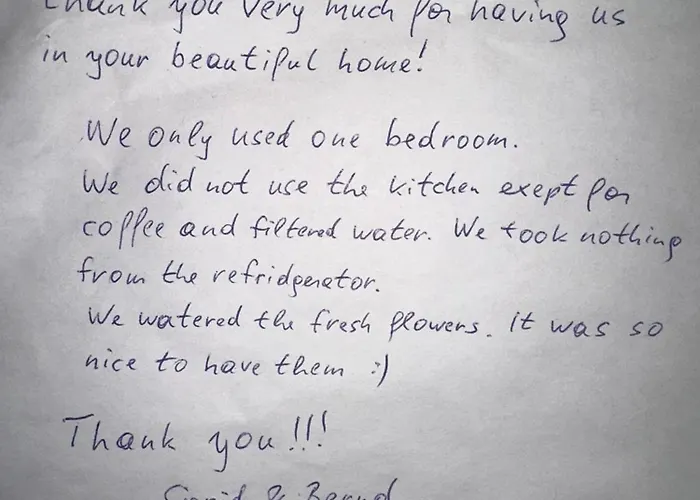 thank you very much for having us
in your beautiful home!
We only used one bedroom.
We did not use the kitchen exept for
coffee and filtered water. We took nothing
from the refridgerator.
We watered the fresh flowers. It was so
nice to have them :)
Thank you!!!
& Bernd